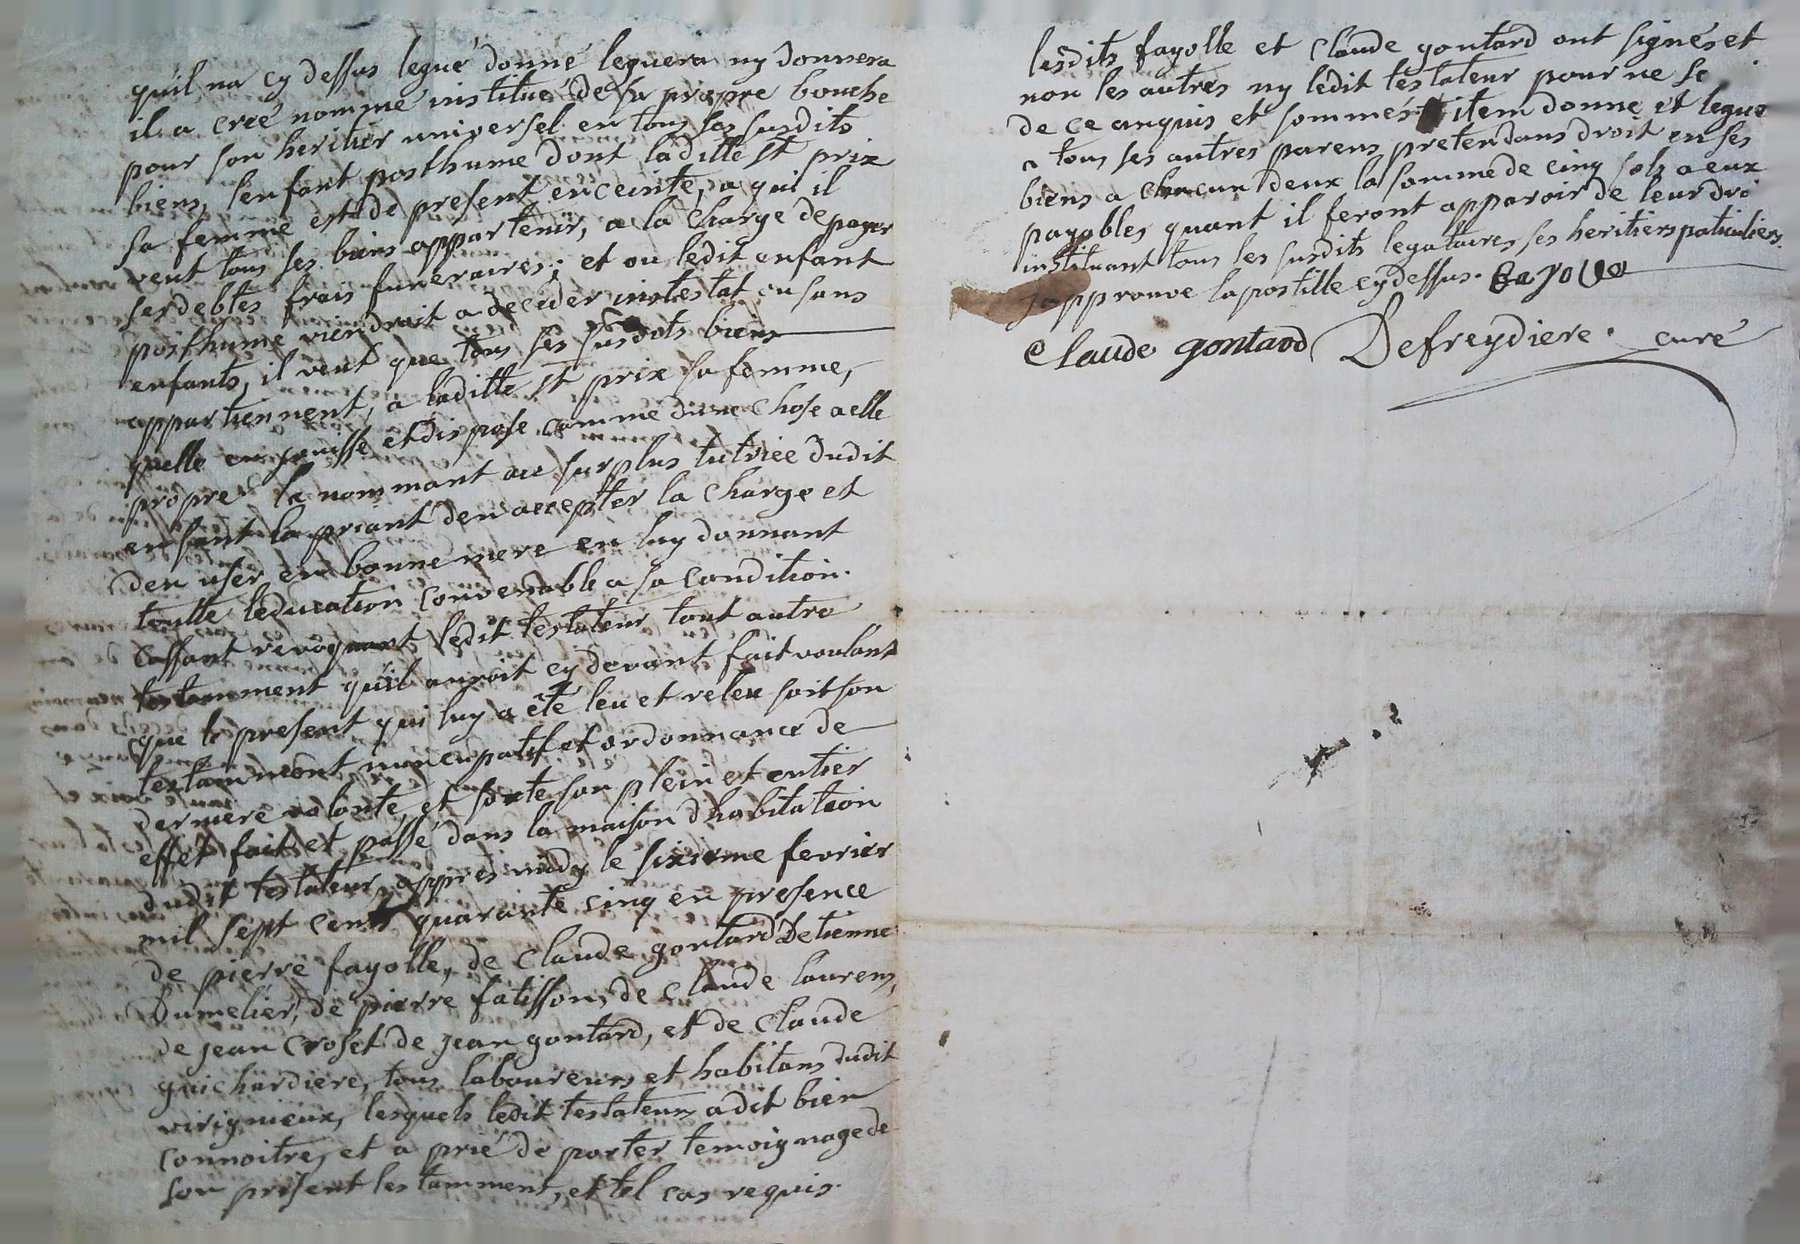 quil na cy dessus legué donné leguera ny donnera
il a creé nommé institué de sa propre bouche
pour son heritier universel en tous ses susdits
biens, lenfant posthume dont laditte st prix
sa femme est de present enceinte, a qui il
veut tous ses biens appartenir, a la charge de payer
ses debtes frais funeraires; et ou ledit enfant
posthume viendroit a deceder intestat ou sans
enfants, il veut que tous ses susdots biens
appartiennent, a laditte st prix sa femme,
quelle en jouisse et dispose comme dune chose a elle
propre la nommant au surplus tutrice dudit
enfant la priant den accepter la charge et
den user en bonne mere en luy donnant
toutte leducation convenable a sa condition.
cassant revoquant ledit testateur tout autre
testamment quil auroit cy devant fait voulant
que le present qui luy a été leu et releu soit son
testamment nuncupatif et ordonnance de
derniere volonte, et sorte son plein et entier
effet fait et passé dans la maison dhabitation
dudit testateur appres midy le sixieme fevrier
mil sept cent quarante cinq en presence
de pierre fayolle, de claude gontard Detienne
Dumelier, de pierre fatisson, de claude laurens,
de jean croset de jean gontard, et de claude
guichardiere, tous laboureurs et habitans dudit
virigneux, lesquels ledit testateur a dit bien
connoitre, et a prié de porter temoignage de
son present testamment, et tel cas requis.
lesdits fayolle et claude gontard ont signés et
non les autres ny ledit testateur pour ne se
de ce anquis et sommés item donne et legue
a tous ses autres parens pretendans droit en ses
biens a chacun deux la somme de cinq sols a eux
payables quant il feront apparoir de leur dro
instituant tous les susdits legataires ses heritiers paticuliers.
japprouve lapostille cy dessus.
Claude gontard Defreydiere. curé